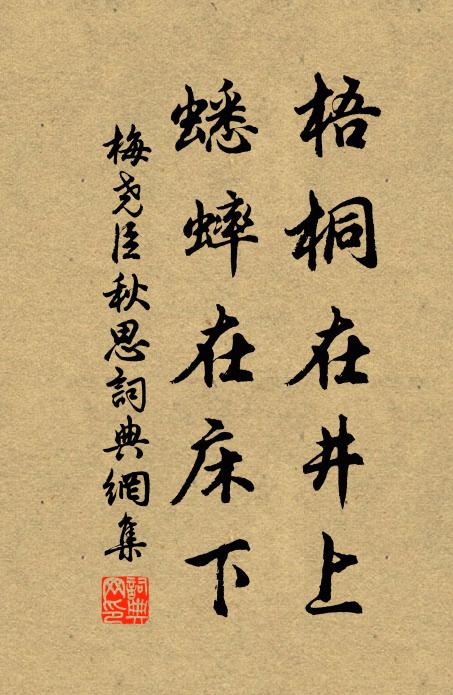 梧桐在井上
蟋蟀在床下
梅尧臣秋思詞典網集
詞典
网印